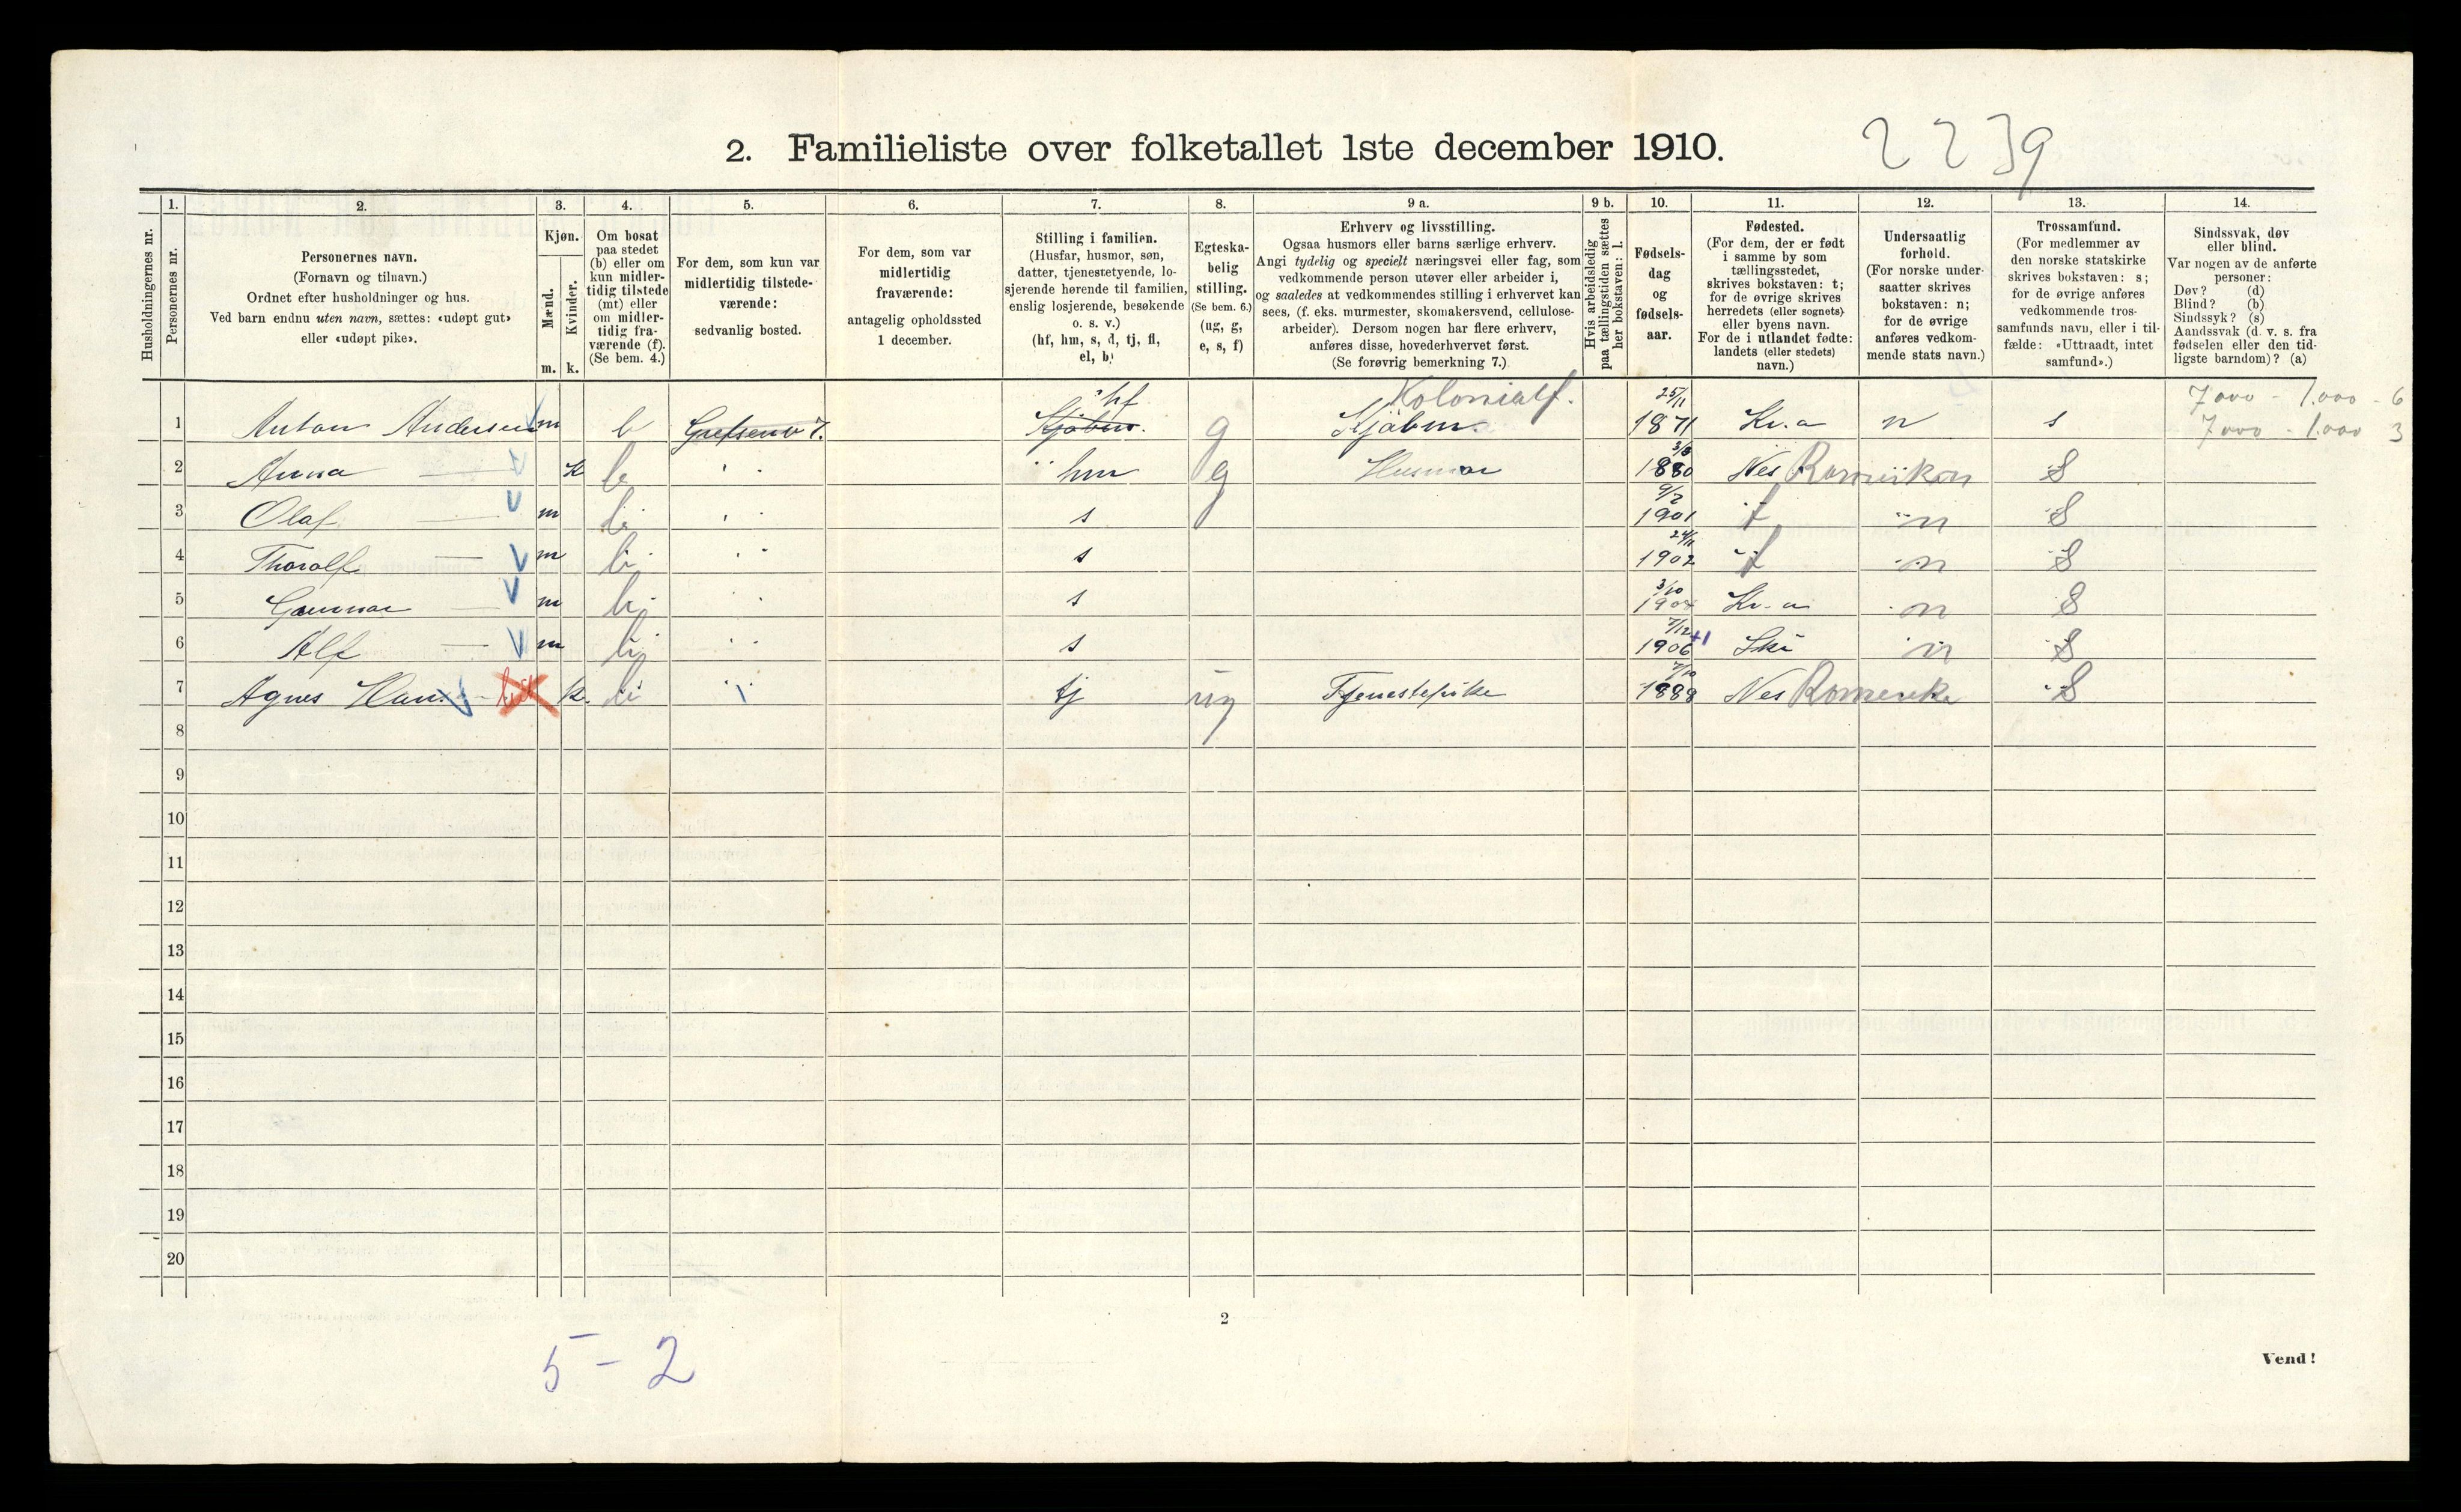 2239
2. Familieliste over folketallet 1ste december 1910.
Husholdningernes nr.
1. Personernes nr.
2. Personernes navn.
(Fornavn og tilnavn.)
Ordnet efter husholdninger og hus.
Ved barn endnu uten navn, sættes: «udøpt gut»
eller «udøpt pike».
3. Kjøn.
Mænd. Kvinder.
m. k.
4. Om bosat
paa stedet
(b) eller om
kun midler-
tidig tilstede
(mt) eller
om midler-
tidig fra-
værende (f).
(Se bem. 4.)
5. For dem, som kun var
midlertidig tilstede-
værende:
sedvanlig bosted.
6. For dem, som var
midlertidig
fraværende:
antagelig opholdssted
1 december.
7. Stilling i familien.
(Husfar, husmor, søn,
datter, tjenestetyende, lo-
sjerende hørende til familien,
enslig losjerende, besøkende
o. s. v.)
(hf, hm, s, d, tj, fl,
el, b)
8. Egteska-
belig
stilling.
(Se bem. 6.)
(ug, g,
e, s, f)
9 a. Erhverv og livsstilling.
Ogsaa husmors eller barns særlige erhverv.
Angi tydelig og specielt næringsvei eller fag, som
vedkommende person utøver eller arbeider i,
og saaledes at vedkommendes stilling i erhvervet kan
sees, (f. eks. murmester, skomakersvend, cellulose-
arbeider). Dersom nogen har flere erhverv,
anføres disse, hovederhvervet først.
(Se forøvrig bemerkning 7.)
9 b. Hvis arbeidsledig
paa tællingstiden sættes
her bokstaven: l.
10. Fødsels-
dag
og
fødsels-
aar.
11. Fødested.
(For dem, der er født
i samme by som
tællingsstedet,
skrives bokstaven: t;
for de øvrige skrives
herredets (eller sognets)
eller byens navn.
For de i utlandet fødte:
landets (eller stedets)
navn.)
12. Undersaatlig
forhold.
(For norske under-
saatter skrives
bokstaven: n;
for de øvrige
anføres vedkom-
mende stats navn.)
13. Trossamfund.
(For medlemmer av
den norske statskirke
skrives bokstaven: s;
for de øvrige anføres
vedkommende tros-
samfunds navn, eller i til-
fælde: «Uttraadt, intet
samfund».)
14. Sindssvak, døv
eller blind.
Var nogen av de anførte
personer:
Døv? (d)
Blind? (b)
Sindssyk? (s)
Aandssvak (d. v. s. fra
fødselen eller den tid-
ligste barndom)? (a)
hf Kolonialf. 25/11 7000 - 1.000 - 6
1 Anton Andersen m b Grefsenv 7. Kjøbm. g Kjøbm. 1871 Kr.a n s 7000 - 1.000 3
2 Anna — k b " " hm g Husmor 3/8 1880 Nes Romerike n S
3 Olaf — m b " " s 9/2 1901 t n S
4 Thoralf — m b " " s 24/11 1902 t n S
5 Gunnar — m b " " s 3/10 1904 Kr.a n S
6 Alf — m b " " s 7/12 1906 +1 Ski n S
7 Agnes k. b tj ug Tjenestepike 7/10 1888 Nes Romerike S
8
9
10
11
12
13
14
15
16
17
18
19
20
2
5 - 2
Vend!